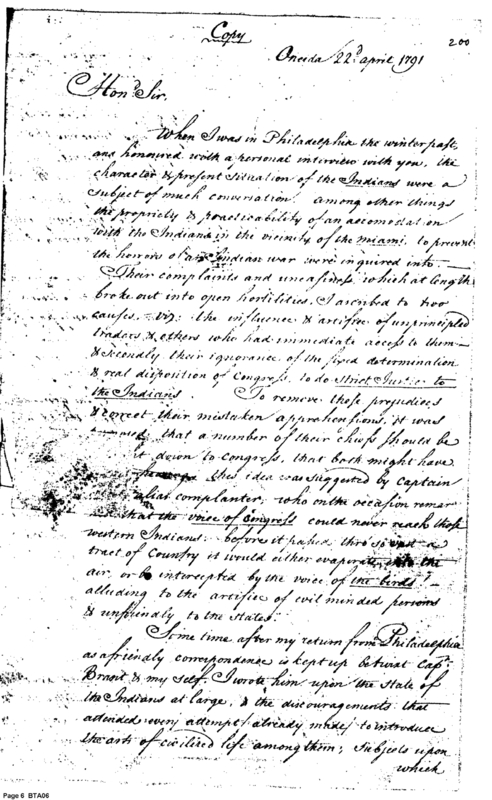 Copy
200
Oneida 22d april 1791
Hond Sir.
When I was in Philadelphia the winter past,
and honoured with a personal interview with you, the
character & present situation of the Indians were a
subject of much conversation. among other things
the propriety & practicability of an accomodation
with the Indians in the vicinity of the miami. to prevent
the horrors of an Indian war were inquired into —
Their complaints and uneasiness, which at length
broke out into open hostilities, I ascribed to two
causes. viz. the influence & artifice of unprincipled
traders & others who had immediate access to them —
& secondly their ignorance of the fixed determination
& real disposition of Congress, to do strict Justice to
the Indians. To remove those prejudices
& correct their mistaken apprehensions, it was
that a number of their chiefs should be
down to Congress, that both might have
this idea was suggested by Captain
alias complanter, who on the occasion remar
that the voice of Congress could never reach those
western Indians. before it passed thro so vast a
tract of Country it would either evaporate into the
air, or be intercepted by the voice of the birds —
alluding to the artifice of evil minded persons
& unfriendly to the States.
Some time after my return from Philadelphia
as a friendly correspondence is kept up betwixt Capn
Brant & my self. I wrote him upon the State of
the Indians at large, & the discouragements that
attended every attempt already made to introduce
the arts of civilized life among them; Subjects upon
which
Page 6 BTA06